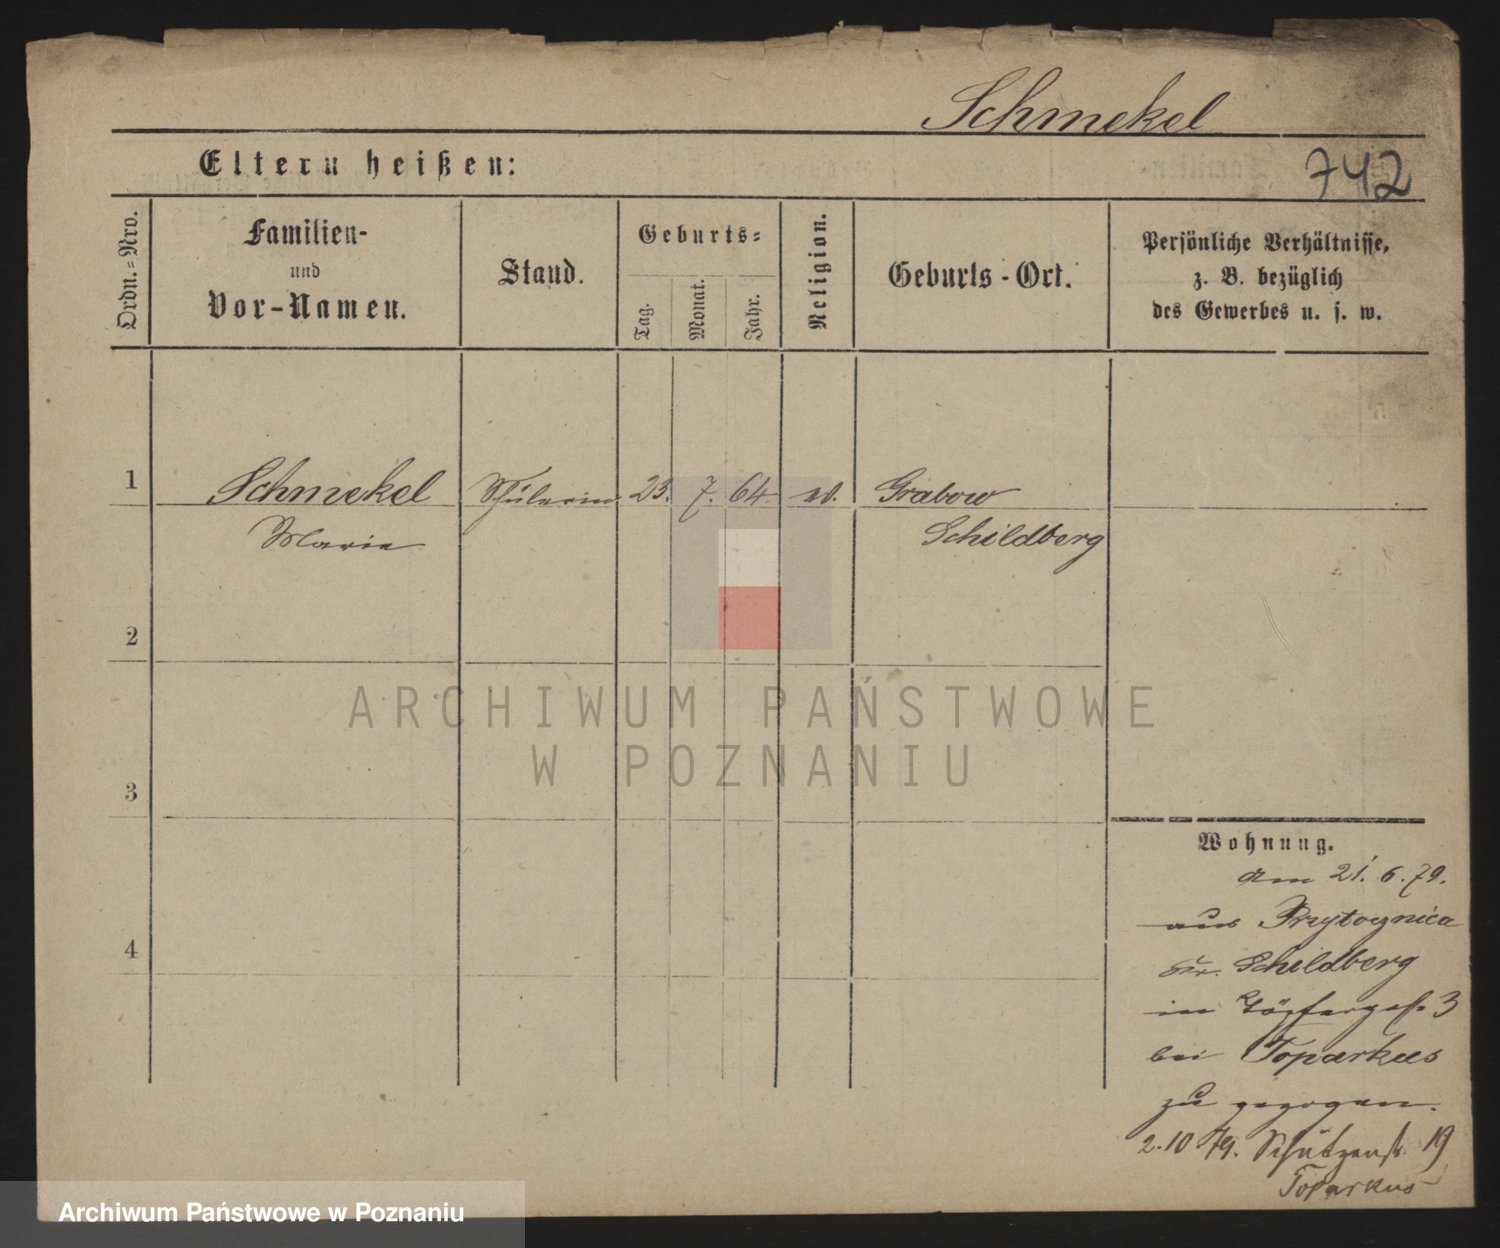 Schmekel
Eltern heißen:
742
Ordn.=Nro.
Familien-
und
Vor-Namen.
Stand.
Geburts=
Tag.
Monat.
Jahr.
Religion.
Geburts-Ort.
Persönliche Verhältnisse,
z. B. bezüglich
des Gewerbes u. s. w.
1
Schmekel
Schülerin
23.
7.
64.
ev.
Grabow
Marie
Schildberg
2
3
4
Wohnung.
Am 21. 6. 79.
aus Przytocznica
Kr. Schildberg
in Töpfergass 3
bei Toparkus
zu gezogen.
2.10 79. Schützenstr. 19
Toparkus
ARCHIWUM PAŃSTWOWE
W POZNANIU
Archiwum Państwowe w Poznaniu